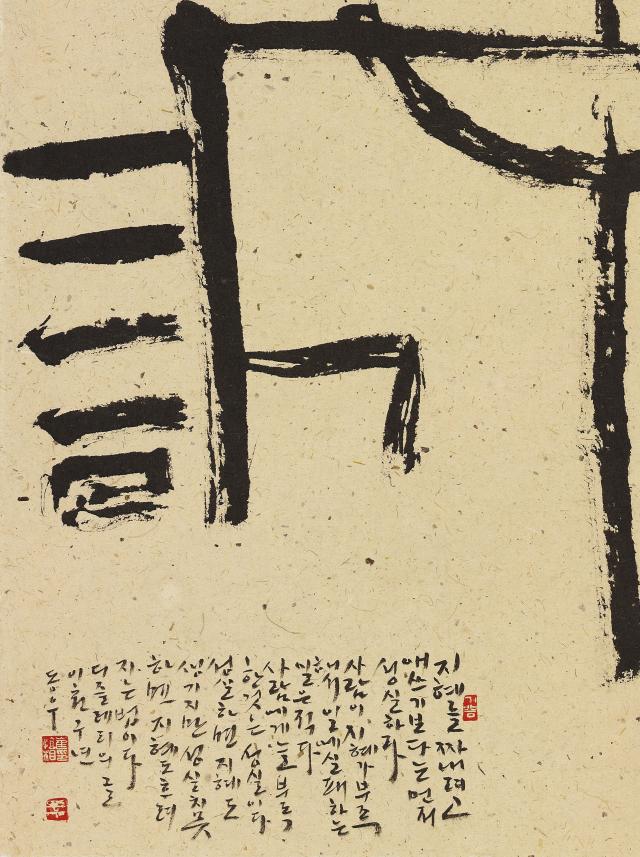 지혜를 짜내려고
애쓰기보다는 먼저
성실하라
사람이 지혜가 부족
해서 일에 실패하는
일은 적다
사람에게 늘 부족
한것은 성실이다
성실하면 지혜도
생기지만 성실치 못
하면 지혜도 흐려
지는 법이다
디즐레티의 글
이천구년
동우